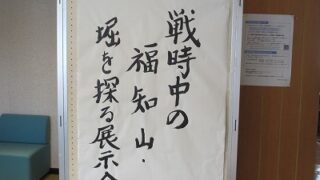 戦時中の
福知山・
堀を探る展示会